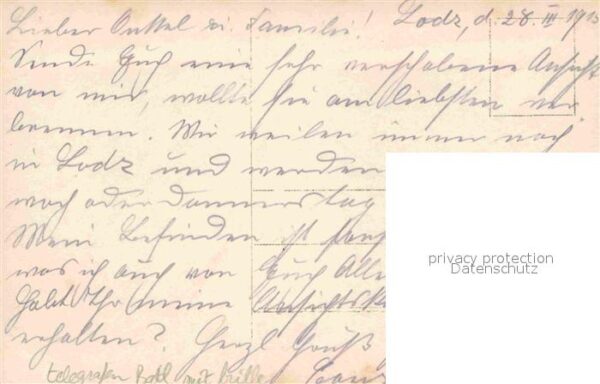 Lieber Onkel u. Familie! Lodz, d. 28. III 1915
Sende Euch eine sehr verschobene Ansicht
von mir, wollte sie am liebsten ver
brennen. Wir weilen immer noch
in Lodz und werden
woch oder Donnerstag
Mein Befinden ist
was ich auch von Euch Alle
Habt Ihr meine Ansichtsk
erhalten? Herzl Gruß
telegrafen mit Brille
privacy protection
Datenschutz